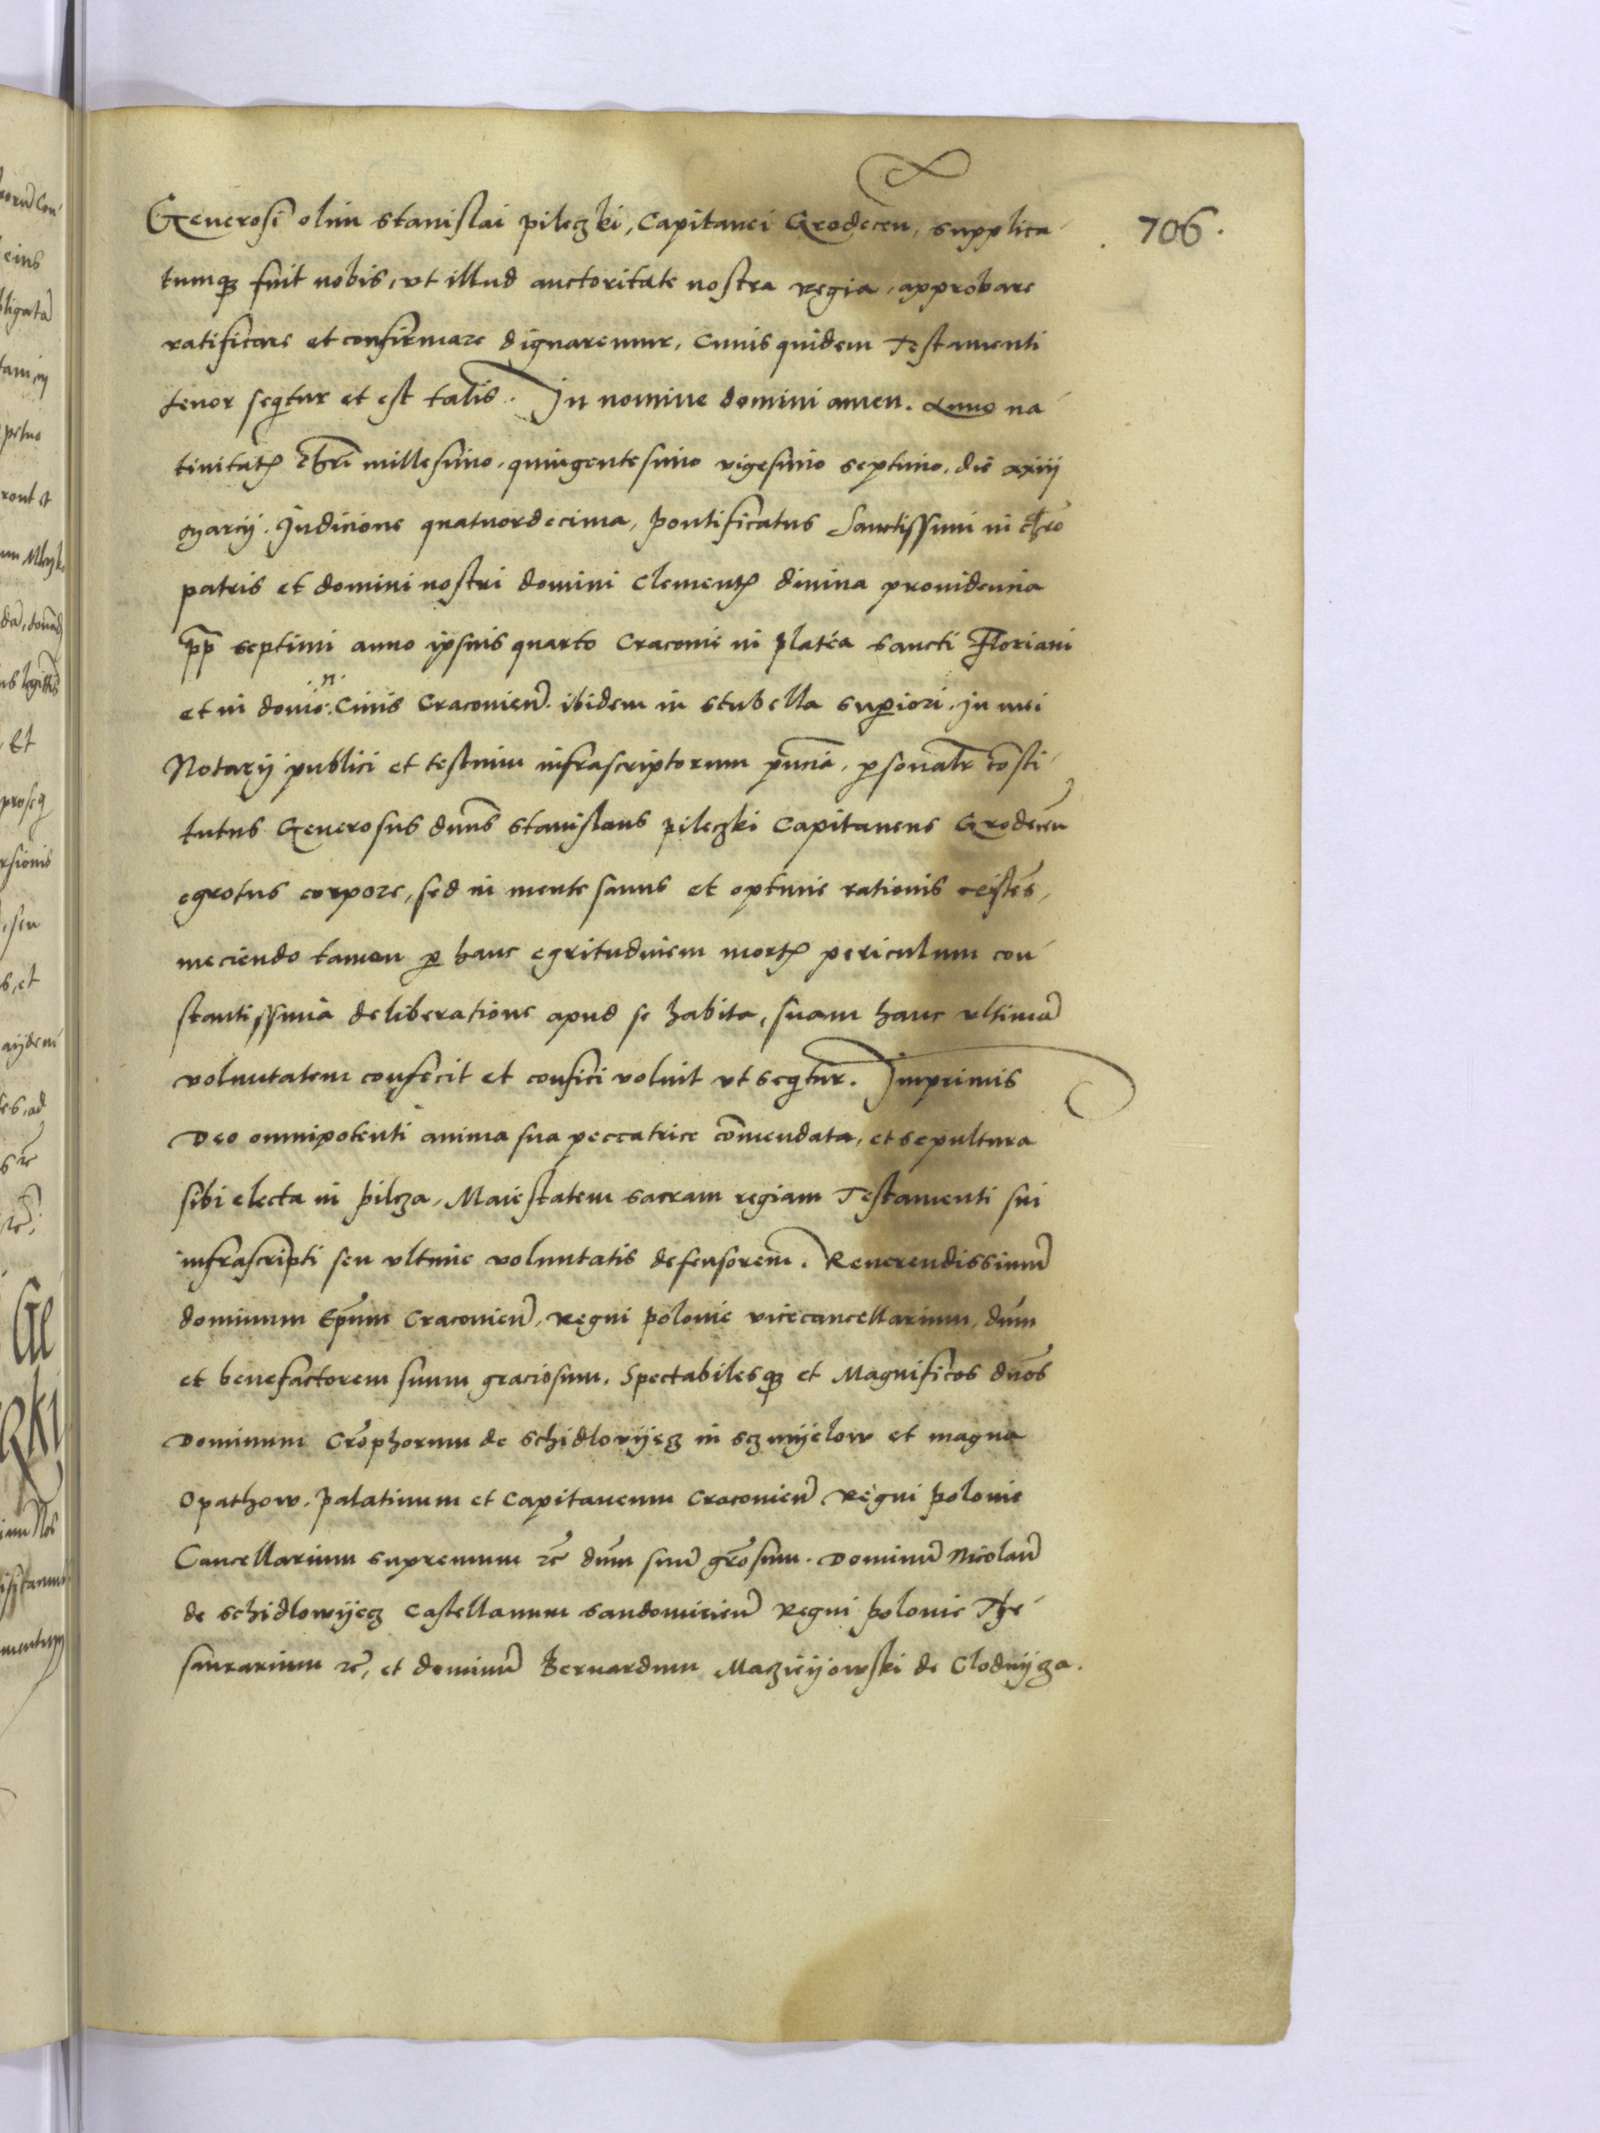 Generosi olim Stanislai Pileczki, Capitanei Grodecen̄, supplica
tumqȝ fuit nobis, vt illud auctoritate nostra regia, approbare
ratificare et confirmare dignaremur, Cuius quidem Testamenti
tenor seqtur et est talis. In nomine domini amen. Anno na
tiuitatꝭ chri millesimo, quingentesimo vigesimo septimo, die xxiij
Marcij. Indicione quatuordecima, Pontificatus Sanctissimi in chro
patris et domini nostri domini Clementꝭ diuina prouidencia
pp septimi anno ipsius quarto Cracouie in platea sancti Floriani
et in domo .N. Ciuis Cracouien̄. ibidem in stubella suꝑiori. In mei
Notarij publici et testium infrascriptorum pn̄cia, ꝑsonalr̄ cōsti
tutus Generosus dn̄s Stanislaus Pileczki Capitaneus Grodecen̄
egrotus corpore, sed in mente sanus et optime rationis existēs,
meciendo tamen ꝑ hanc egritudinem mortꝭ periculum con
stantissima deliberatione apud se habita, suam hanc vltimā
voluntatem confecit et confici voluit vt seqtur. Imprimis
Deo omnipotenti anima sua peccatrice cōmendata, et sepultura
sibi electa in Pilcza, Maiestatem sacram regiam Testamenti sui
infrascripti seu vltime voluntatis defensorem. Reuerendissimū
dominum Ep̄um Cracouien̄, Regni Polonie vicecancellarium, dn̄m
et benefactorem suum graciosum, Spectabilesqȝ et Magnificos dn̄os
Dominum Cr̄ophorum de Schidlovijecz in Sczmijelow et magna
Opathow, Palatinum et Capitaneum Cracouien̄ Regni Polonie
Cancellarium supremum ⁊c̄ dn̄m suū gr̄osum. Dominū Nicolaū
de Schidlowijecz Castellanum Sandomirien̄ Regni Polonie The
saurarium ⁊c̄, et dominū Bernardum Maczieijowski de Clodnijcza.
706.